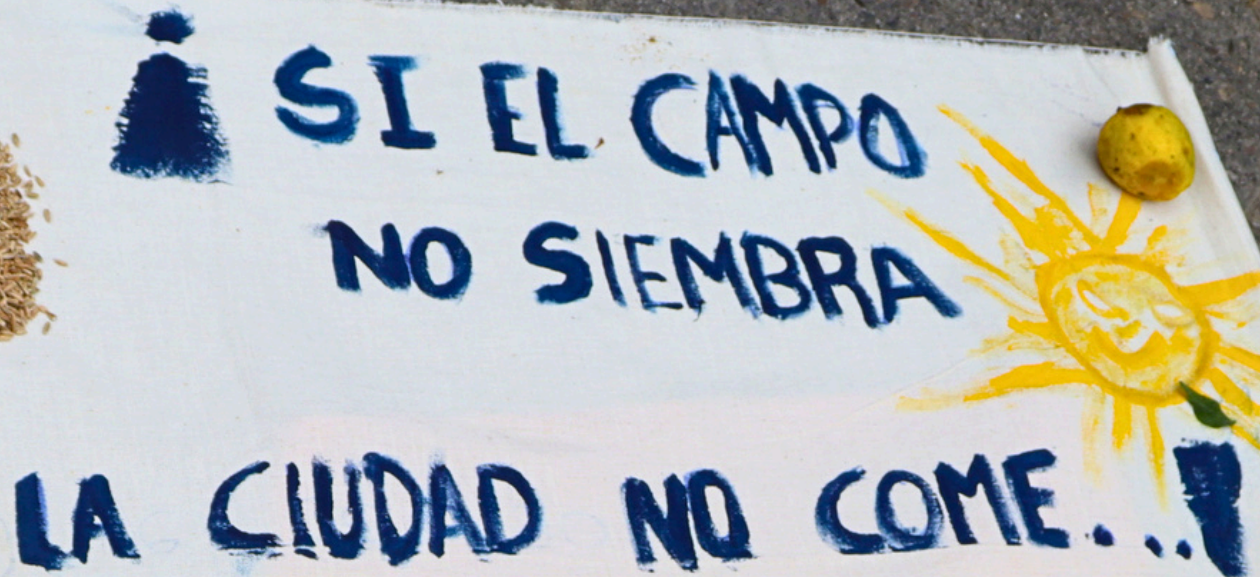 ¡SI EL CAMPO
NO SIEMBRA
LA CIUDAD NO COME...!